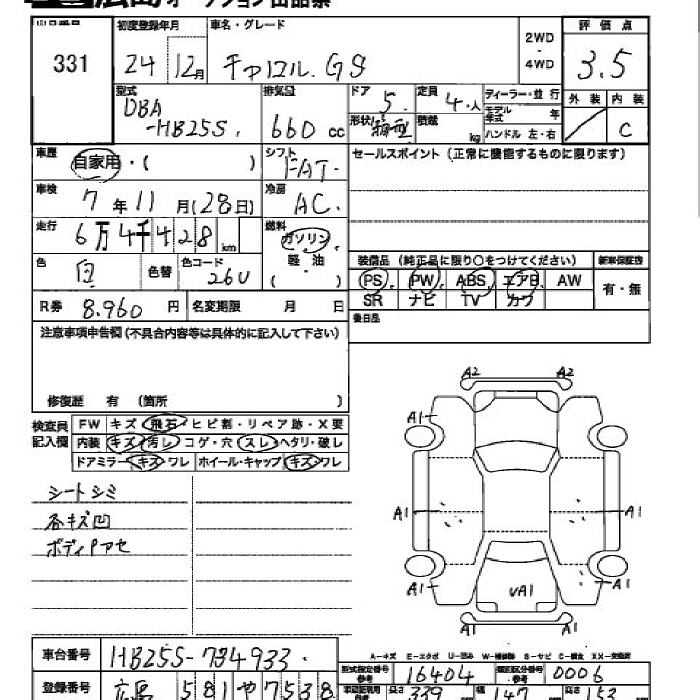 広島オークション出品票
331
初度登録年月 24 12月
車名・グレード キャロル.GS
2WD・4WD
評価点 3.5
型式 DBA-HB25S.
排気量 660cc
ドア 5.
形状 箱型
定員 4・人
積載 kg
ディーラー・並行
モデル年式 年
ハンドル 左・右
外装 内装
C
車歴 自家用・( )
シフト FAT・
セールスポイント (正常に機能するものに限ります)
車検 7年11月(28日)
冷房 AC.
走行 6万4千428km
燃料 ガソリン・軽・油 ( )
色 白 色替 色コード 26U
装備品 (純正品に限り○をつけてください) 新車保証書
PS. PW. ABS. エアB. AW 有・無
SR ナビ TV カワ
R券 8.960円 名変期限 月 日
後日品
注意事項申告欄(不具合内容等は具体的に記入して下さい)
修復歴 有 (箇所 )
検査員記入欄
FW キズ・飛石・ヒビ割・リペア跡・X要
内装 キズ・汚し・コゲ・穴・スレ・ヘタリ・破し
ドアミラー・キズ・ワレ ホイール・キャップ・キズ・ワレ
シートシミ
各キズ凹
ボディPアセ
A2 A2
A1 A1
A1 A1
A1
UA1
車台番号 HB25S-734933.
A-キズ E-エクボ U-凹み W-補修跡 S-サビ C-腐食 XX-交換済
型式指定番号参考 16404 類別区分番号参考 0006
登録番号 広島 581 や 7538
長さ 339 幅 147 高さ 153